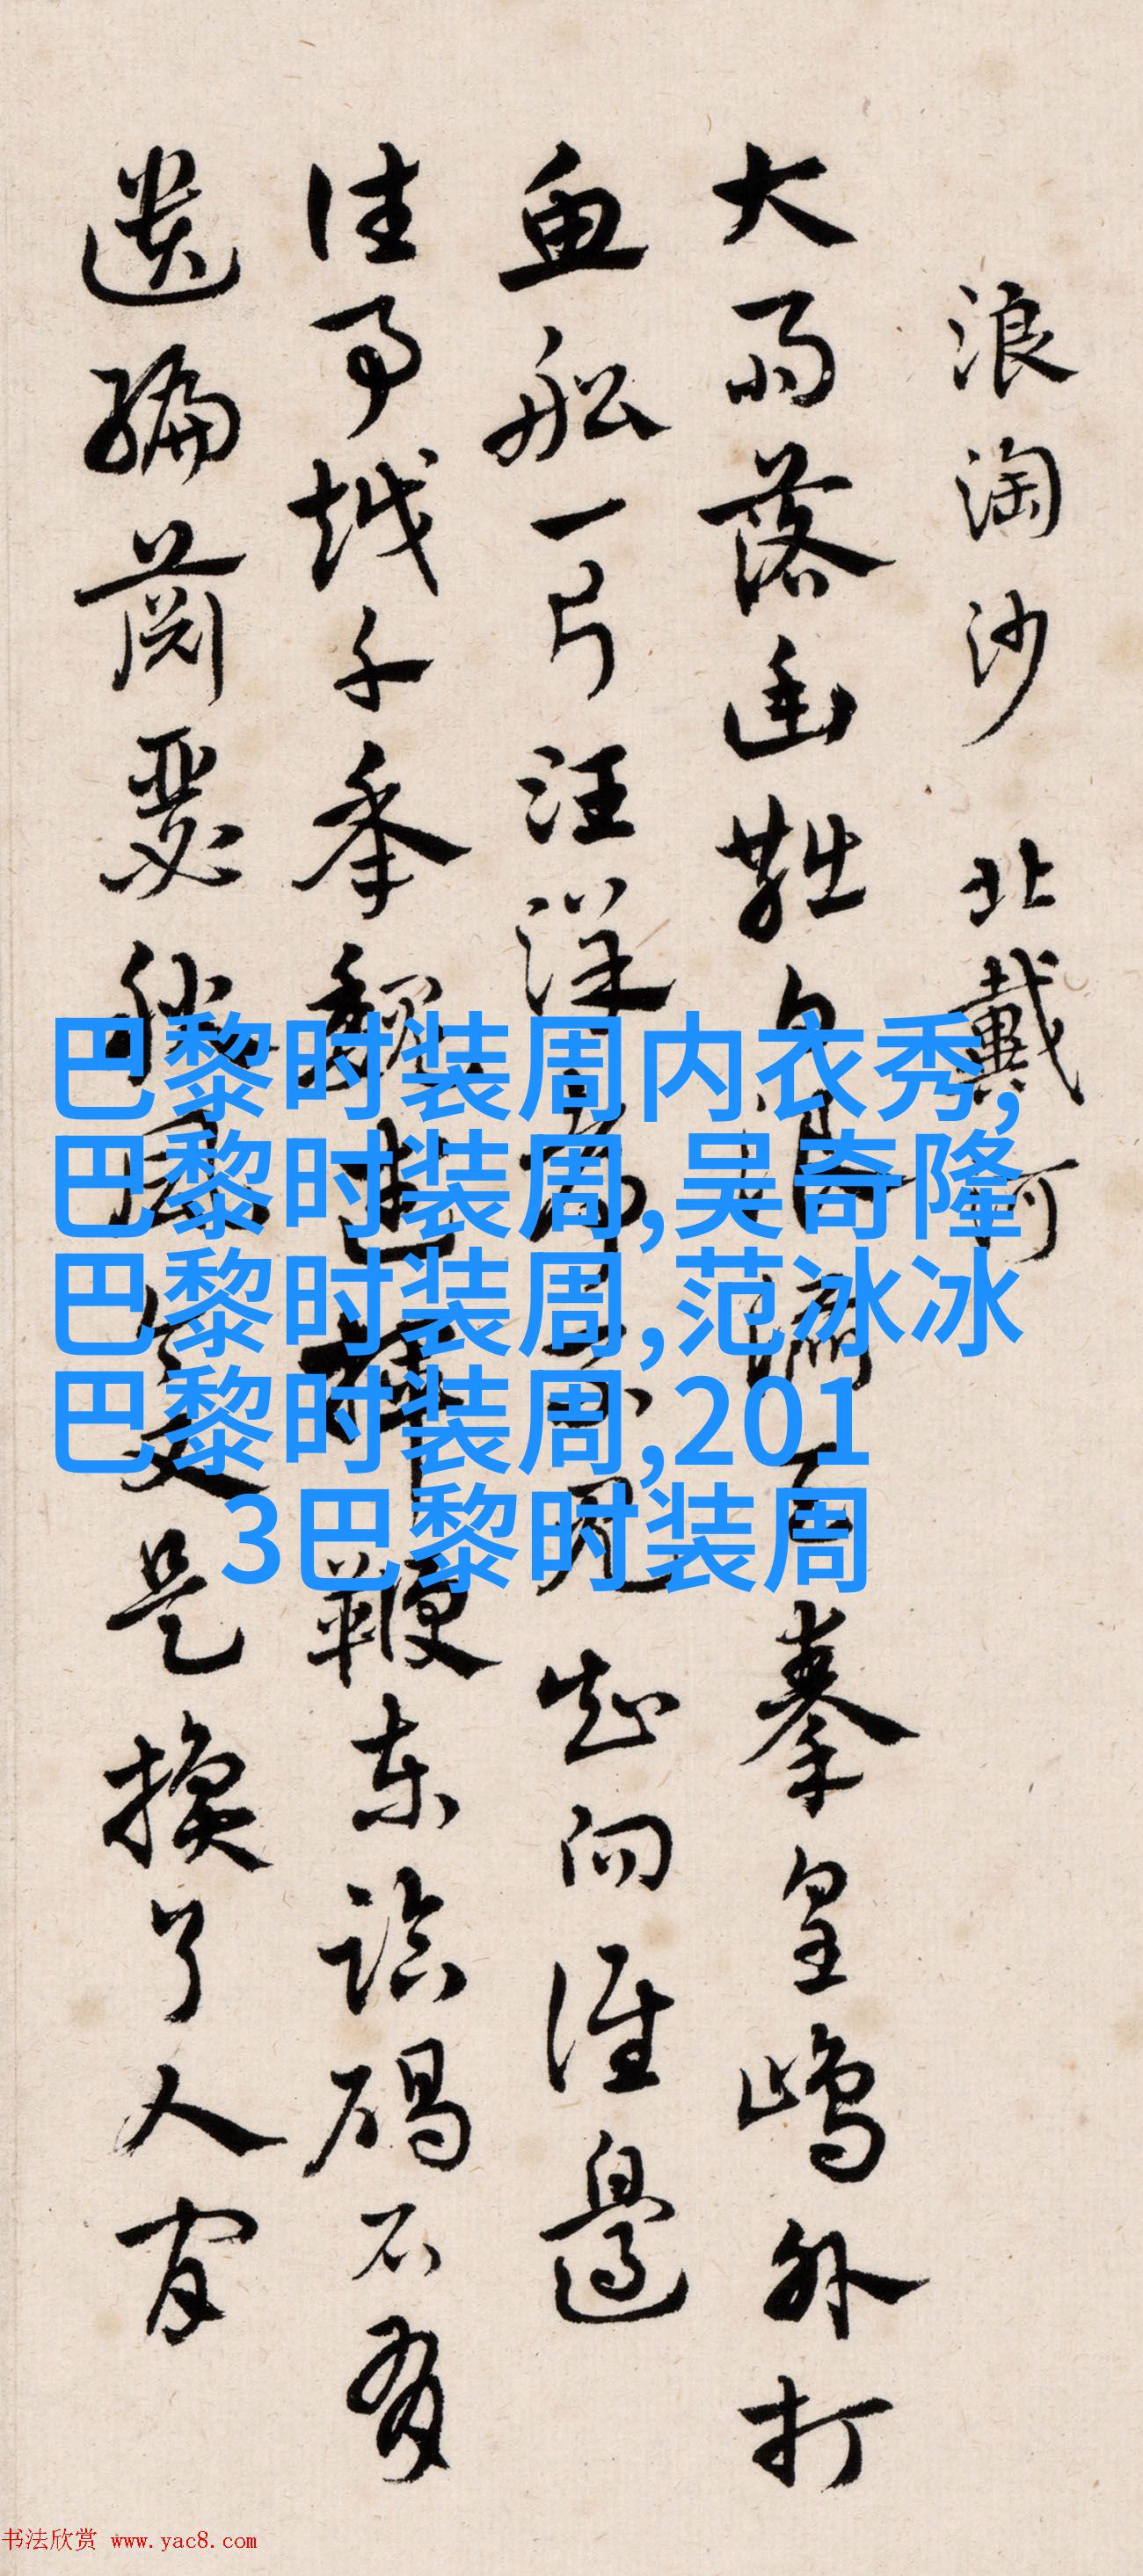 浪淘沙 北戴河
大雨落幽燕白浪滔天秦皇嶋外打
魚船一片汪洋都不見知向誰邊
往事越千年魏武揮鞭東臨碣石有
遺編蕭瑟秋風今又是換了人間
巴黎时装周内衣秀,
巴黎时装周,吴奇隆
巴黎时装周,范冰冰
巴黎时装周,201
3巴黎时装周
书法欣赏 www.yac8.com